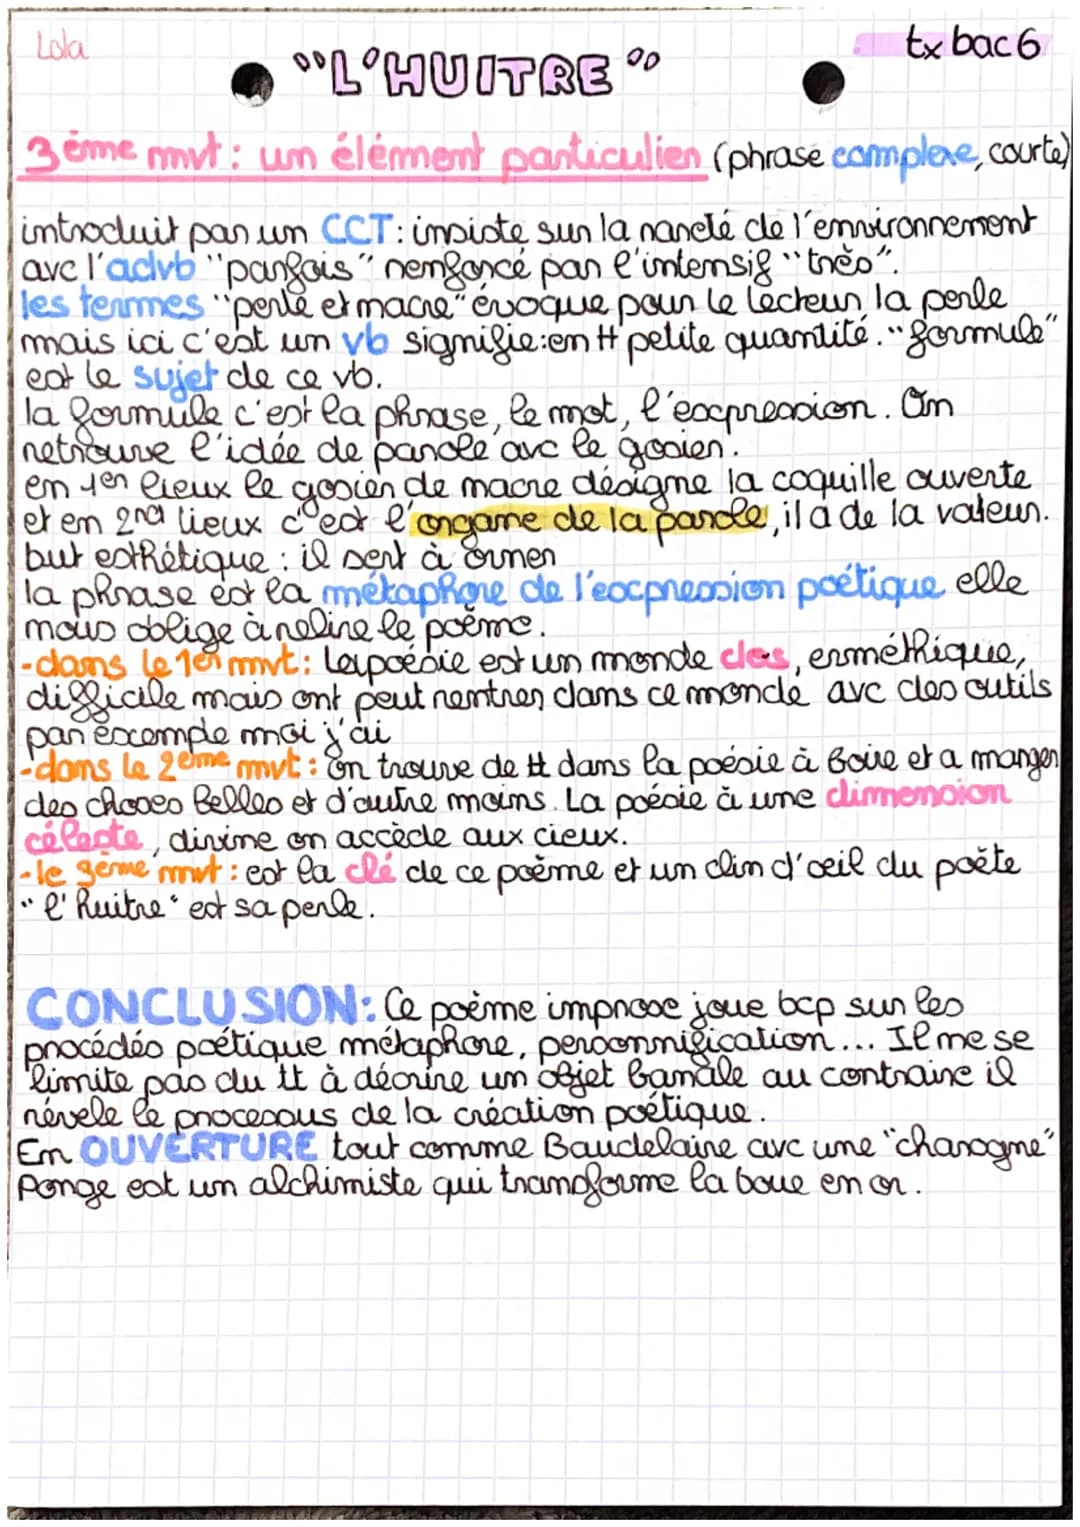 Lola
tx bac 6
"L'HUITRE"
3ème mvt : un élément particulier (phrase complexe, courte)
introduit par un CCT : insiste sur la rareté de l'environnement
avc l'advb "parfois" renforcé par l'intensif "très".
les termes "perle et nacre" évoque pour le lecteur la perle
mais ici c'est un vb signifie : en tt petite quantité. "formule"
est le sujet de ce vb.
la formule c'est la phrase, le mot, l'expression. On
retrouve l'idée de parole avc le gosier.
en 1er lieux le gosier de nacre désigne la coquille ouverte
et en 2nd lieux c'est l'organe de la parole, il a de la valeur.
but esthétique : il sert à orner
la phrase est la métaphore de l'expression poétique elle
nous oblige à relire le poème.
- dans le 1er mvt : La poésie est un monde clos, erméthique,
difficile mais ont peut rentrer dans ce monde avc des outils
par exemple moi j'ai
- dans le 2ème mvt : on trouve de tt dans la poésie à boire et a manger
des choses belles et d'autre moins. La poésie à une dimension
céleste, divine on accède aux cieux.
- le 3ème mvt : est la clé de ce poème et un clin d'oeil du poète
"l'huitre" est sa perle.
CONCLUSION : Ce poème improse joue bcp sur les
procédés poétique métaphore, personnification... Il ne se
limite pas du tt à décrire un objet banale au contraire il
révele le processus de la création poétique.
En OUVERTURE tout comme Baudelaire avc une "charogne"
Ponge est un alchimiste qui transforme la boue en or.